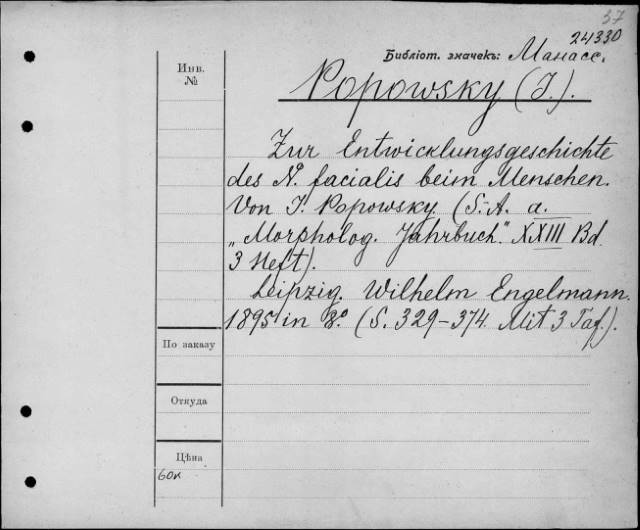 37
24330
Библіот. значекъ: Манасс.
Инв.
№
Popowsky (J.).
Zur Entwicklungsgeschichte
des N. facialis beim Menschen.
Von J. Popowsky. (S.-A. a.
„Morpholog. Jahrbuch." XXIII Bd.
3 Heft).
Leipzig. Wilhelm Engelmann.
1895 in 8.° (S. 329-374. Mit 3 Taf.).
По заказу
Откуда
Цѣна
60к